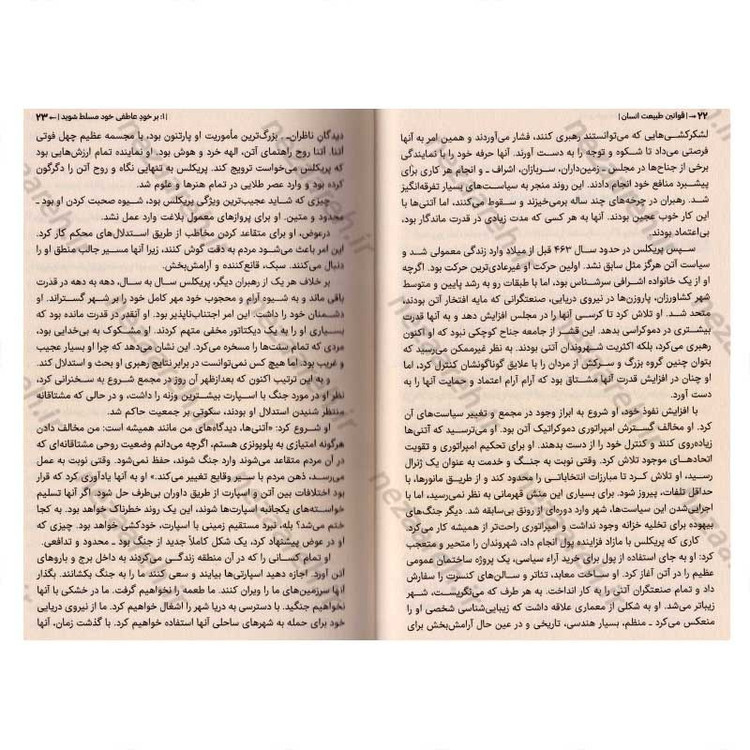 ۲۲ ← | قوانین طبیعت انسان |
لشکرکشی‌هایی که می‌توانستند رهبری کنند، فشار می‌آوردند و همین امر به آنها
فرصتی می‌داد تا شکوه و توجه را به دست آورند. آنها حرفه خود را با نمایندگی
برخی از جناح‌ها در مجلس ـ زمین‌داران، سربازان، اشراف ـ و انجام هر کاری برای
پیشبرد منافع خود انجام دادند. این روند منجر به سیاست‌های بسیار تفرقه‌انگیز
شد. رهبران در چرخه‌های چند ساله برمی‌خیزند و سقوط می‌کنند، اما آتنی‌ها با
این کار خوب عجین بودند. آنها به هر کسی که مدت زیادی در قدرت ماندگار بود،
بی‌اعتماد بودند.
سپس پریکلس در حدود سال ۴۶۳ قبل از میلاد وارد زندگی معمولی شد و
سیاست آتن هرگز مثل سابق نشد. اولین حرکت او غیرعادی‌ترین حرکت بود. اگرچه
او از یک خانواده اشرافی سرشناس بود، اما با طبقات رو به رشد پایین و متوسط
شهر کشاورزان، پاروزن‌ها در نیروی دریایی، صنعتگرانی که مایه افتخار آتن بودند،
متحد شد. او تلاش کرد تا کرسی آنها را در مجلس افزایش دهد و به آنها قدرت
بیشتری در دموکراسی بدهد. این قشر از جامعه جناح کوچکی نبود که او اکنون
رهبری می‌کرد، بلکه اکثریت شهروندان آتنی بودند. به نظر غیرممکن می‌رسید که
بتوان چنین گروه بزرگ و سرکش از مردان را با علایق گوناگونشان کنترل کرد، اما
او چنان در افزایش قدرت آنها مشتاق بود که آرام آرام اعتماد و حمایت آنها را به
دست آورد.
با افزایش نفوذ خود، او شروع به ابراز وجود در مجمع و تغییر سیاست‌های آن
کرد. او مخالف گسترش امپراتوری دموکراتیک آتن بود. او می‌ترسید که آتنی‌ها
زیاده‌روی کنند و کنترل خود را از دست بدهند. او برای تحکیم امپراتوری و تقویت
اتحادهای موجود تلاش کرد. وقتی نوبت به جنگ و خدمت به عنوان یک ژنرال
رسید، او تلاش کرد تا مبارزات انتخاباتی را محدود کند و از طریق مانورها، با
حداقل تلفات، پیروز شود. برای بسیاری این منش قهرمانی به نظر نمی‌رسید، اما با
اجرایی‌شدن این سیاست‌ها، شهر وارد دوره‌ای از رونق بی‌سابقه شد. دیگر جنگ‌های
بیهوده برای تخلیه خزانه وجود نداشت و امپراتوری راحت‌تر از همیشه کار می‌کرد.
کاری که پریکلس با مازاد فزاینده پول انجام داد، شهروندان را متحیر و متعجب
کرد: او به جای استفاده از پول برای خرید آراء سیاسی، یک پروژه ساختمان عمومی
عظیم را در آتن آغاز کرد. او ساخت معابد، تئاتر و سالن‌های کنسرت را سفارش
داد و تمام صنعتگران آتنی را به کار انداخت. به هر طرف که می‌نگریست، شهر
زیباتر می‌شد. او به شکلی از معماری علاقه داشت که زیبایی‌شناسی شخصی او را
منعکس می‌کرد ـ منظم، بسیار هندسی، تاریخی و در عین حال آرامش‌بخش برای
| ۱: بر خودِ عاطفی خود مسلط شوید | ← ۲۳
دیدگان ناظران ـ . بزرگ‌ترین مأموریت او پارتنون بود، با مجسمه عظیم چهل فوتی
آتنا. آتنا روح راهنمای آتن، الهه خرد و هوش بود. او نماینده تمام ارزش‌هایی بود
که پریکلس می‌خواست ترویج کند. پریکلس به تنهایی نگاه و روح آتن را دگرگون
کرده بود و وارد عصر طلایی در تمام هنرها و علوم شد.
چیزی که شاید عجیب‌ترین ویژگی پریکلس بود، شیوه صحبت کردن او بود ـ
محدود و متین. او برای پروازهای معمول بلاغت وارد عمل نشد.
درعوض، او برای متقاعد کردن مخاطب از طریق استدلال‌های محکم کار کرد.
این امر باعث می‌شود مردم به دقت گوش کنند، زیرا آنها مسیر جالب منطق او را
دنبال می‌کنند. سبک، قانع‌کننده و آرامش‌بخش.
بر خلاف هر یک از رهبران دیگر، پریکلس سال به سال، دهه به دهه در قدرت
باقی ماند و به شیوه آرام و محجوب خود مهر کامل خود را بر شهر گستراند. او
دشمنان خود را داشت. این امر اجتناب‌ناپذیر بود. او آنقدر در قدرت مانده بود که
بسیاری او را به یک دیکتاتور مخفی متهم کردند. او مشکوک به بی‌خدایی بود،
مردی که تمام سنت‌ها را مسخره می‌کرد. این نشان می‌دهد که چرا او بسیار عجیب
و غریب بود. اما هیچ کس نمی‌توانست در برابر نتایج رهبری او بحث کند.
و به این ترتیب اکنون که بعدازظهر آن روز در مجمع شروع به سخنرانی کرد،
نظر او در مورد جنگ با اسپارت بیشترین وزنه را داشت، و در حالی که مشتاقانه
منتظر شنیدن استدلال او بودند، سکوتی بر جمعیت حاکم شد.
او شروع کرد: «آتنی‌ها، دیدگاه‌های من مانند همیشه است: من مخالف دادن
هرگونه امتیازی به پلوپونزی هستم، اگرچه می‌دانم وضعیت روحی مشتاقانه‌ای که
در آن مردم متقاعد می‌شوند وارد جنگ شوند، حفظ نمی‌شود. وقتی نوبت به عمل
می‌رسد، ذهن مردم با سیر وقایع تغییر می‌کند.» او به آنها یادآوری کرد که قرار
بود اختلافات بین آتن و اسپارت از طریق داوران بی‌طرف حل شود. اگر آنها تسلیم
خواسته‌های یکجانبه اسپارت‌ها شوند، این یک روند خطرناک خواهد بود. به کجا
ختم می‌شد؟ بله، نبرد مستقیم زمینی با اسپارت، خودکشی خواهد بود. چیزی که
او در عوض پیشنهاد کرد، یک شکل کاملاً جدید از جنگ بود ـ محدود و تدافعی.
او تمام کسانی را که در آن منطقه زندگی می‌کردند به داخل برج و باروهای
آتن آورد. اجازه دهید اسپارتی‌ها بیایند و سعی کنند ما را به جنگ بکشانند. بگذار
آنها سرزمین‌های ما را ویران کنند. ما طعمه را نخواهیم گرفت. ما در خشکی با آنها
نخواهیم جنگید. با دسترسی به دریا شهر را اشغال خواهیم کرد. ما از نیروی دریایی
خود برای حمله به شهرهای ساحلی آنها استفاده خواهیم کرد. با گذشت زمان، آنها